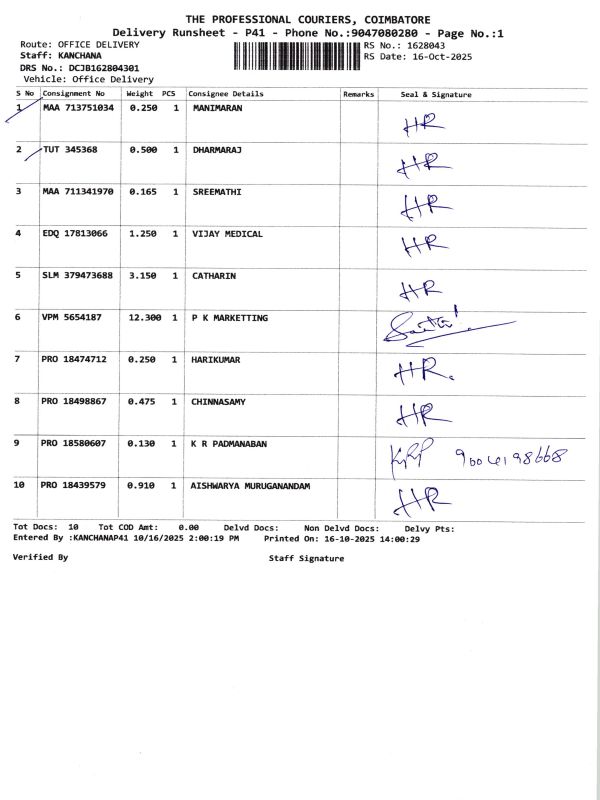 THE PROFESSIONAL COURIERS, COIMBATORE
Delivery Runsheet - P41 - Phone No.:9047080280 - Page No.:1
Route: OFFICE DELIVERY RS No.: 1628043
Staff: KANCHANA RS Date: 16-Oct-2025
DRS No.: DCJB162804301
Vehicle: Office Delivery
S No Consignment No Weight PCS Consignee Details Remarks Seal & Signature
1 MAA 713751034 0.250 1 MANIMARAN HR
2 TUT 345368 0.500 1 DHARMARAJ HR
3 MAA 711341970 0.165 1 SREEMATHI HR
4 EDQ 17813066 1.250 1 VIJAY MEDICAL HR
5 SLM 379473688 3.150 1 CATHARIN HR
6 VPM 5654187 12.300 1 P K MARKETTING
7 PRO 18474712 0.250 1 HARIKUMAR HR.
8 PRO 18498867 0.475 1 CHINNASAMY HR
9 PRO 18580607 0.130 1 K R PADMANABAN
10 PRO 18439579 0.910 1 AISHWARYA MURUGANANDAM HR
Tot Docs: 10 Tot COD Amt: 0.00 Delvd Docs: Non Delvd Docs: Delvy Pts:
Entered By :KANCHANAP41 10/16/2025 2:00:19 PM Printed On: 16-10-2025 14:00:29
Verified By Staff Signature